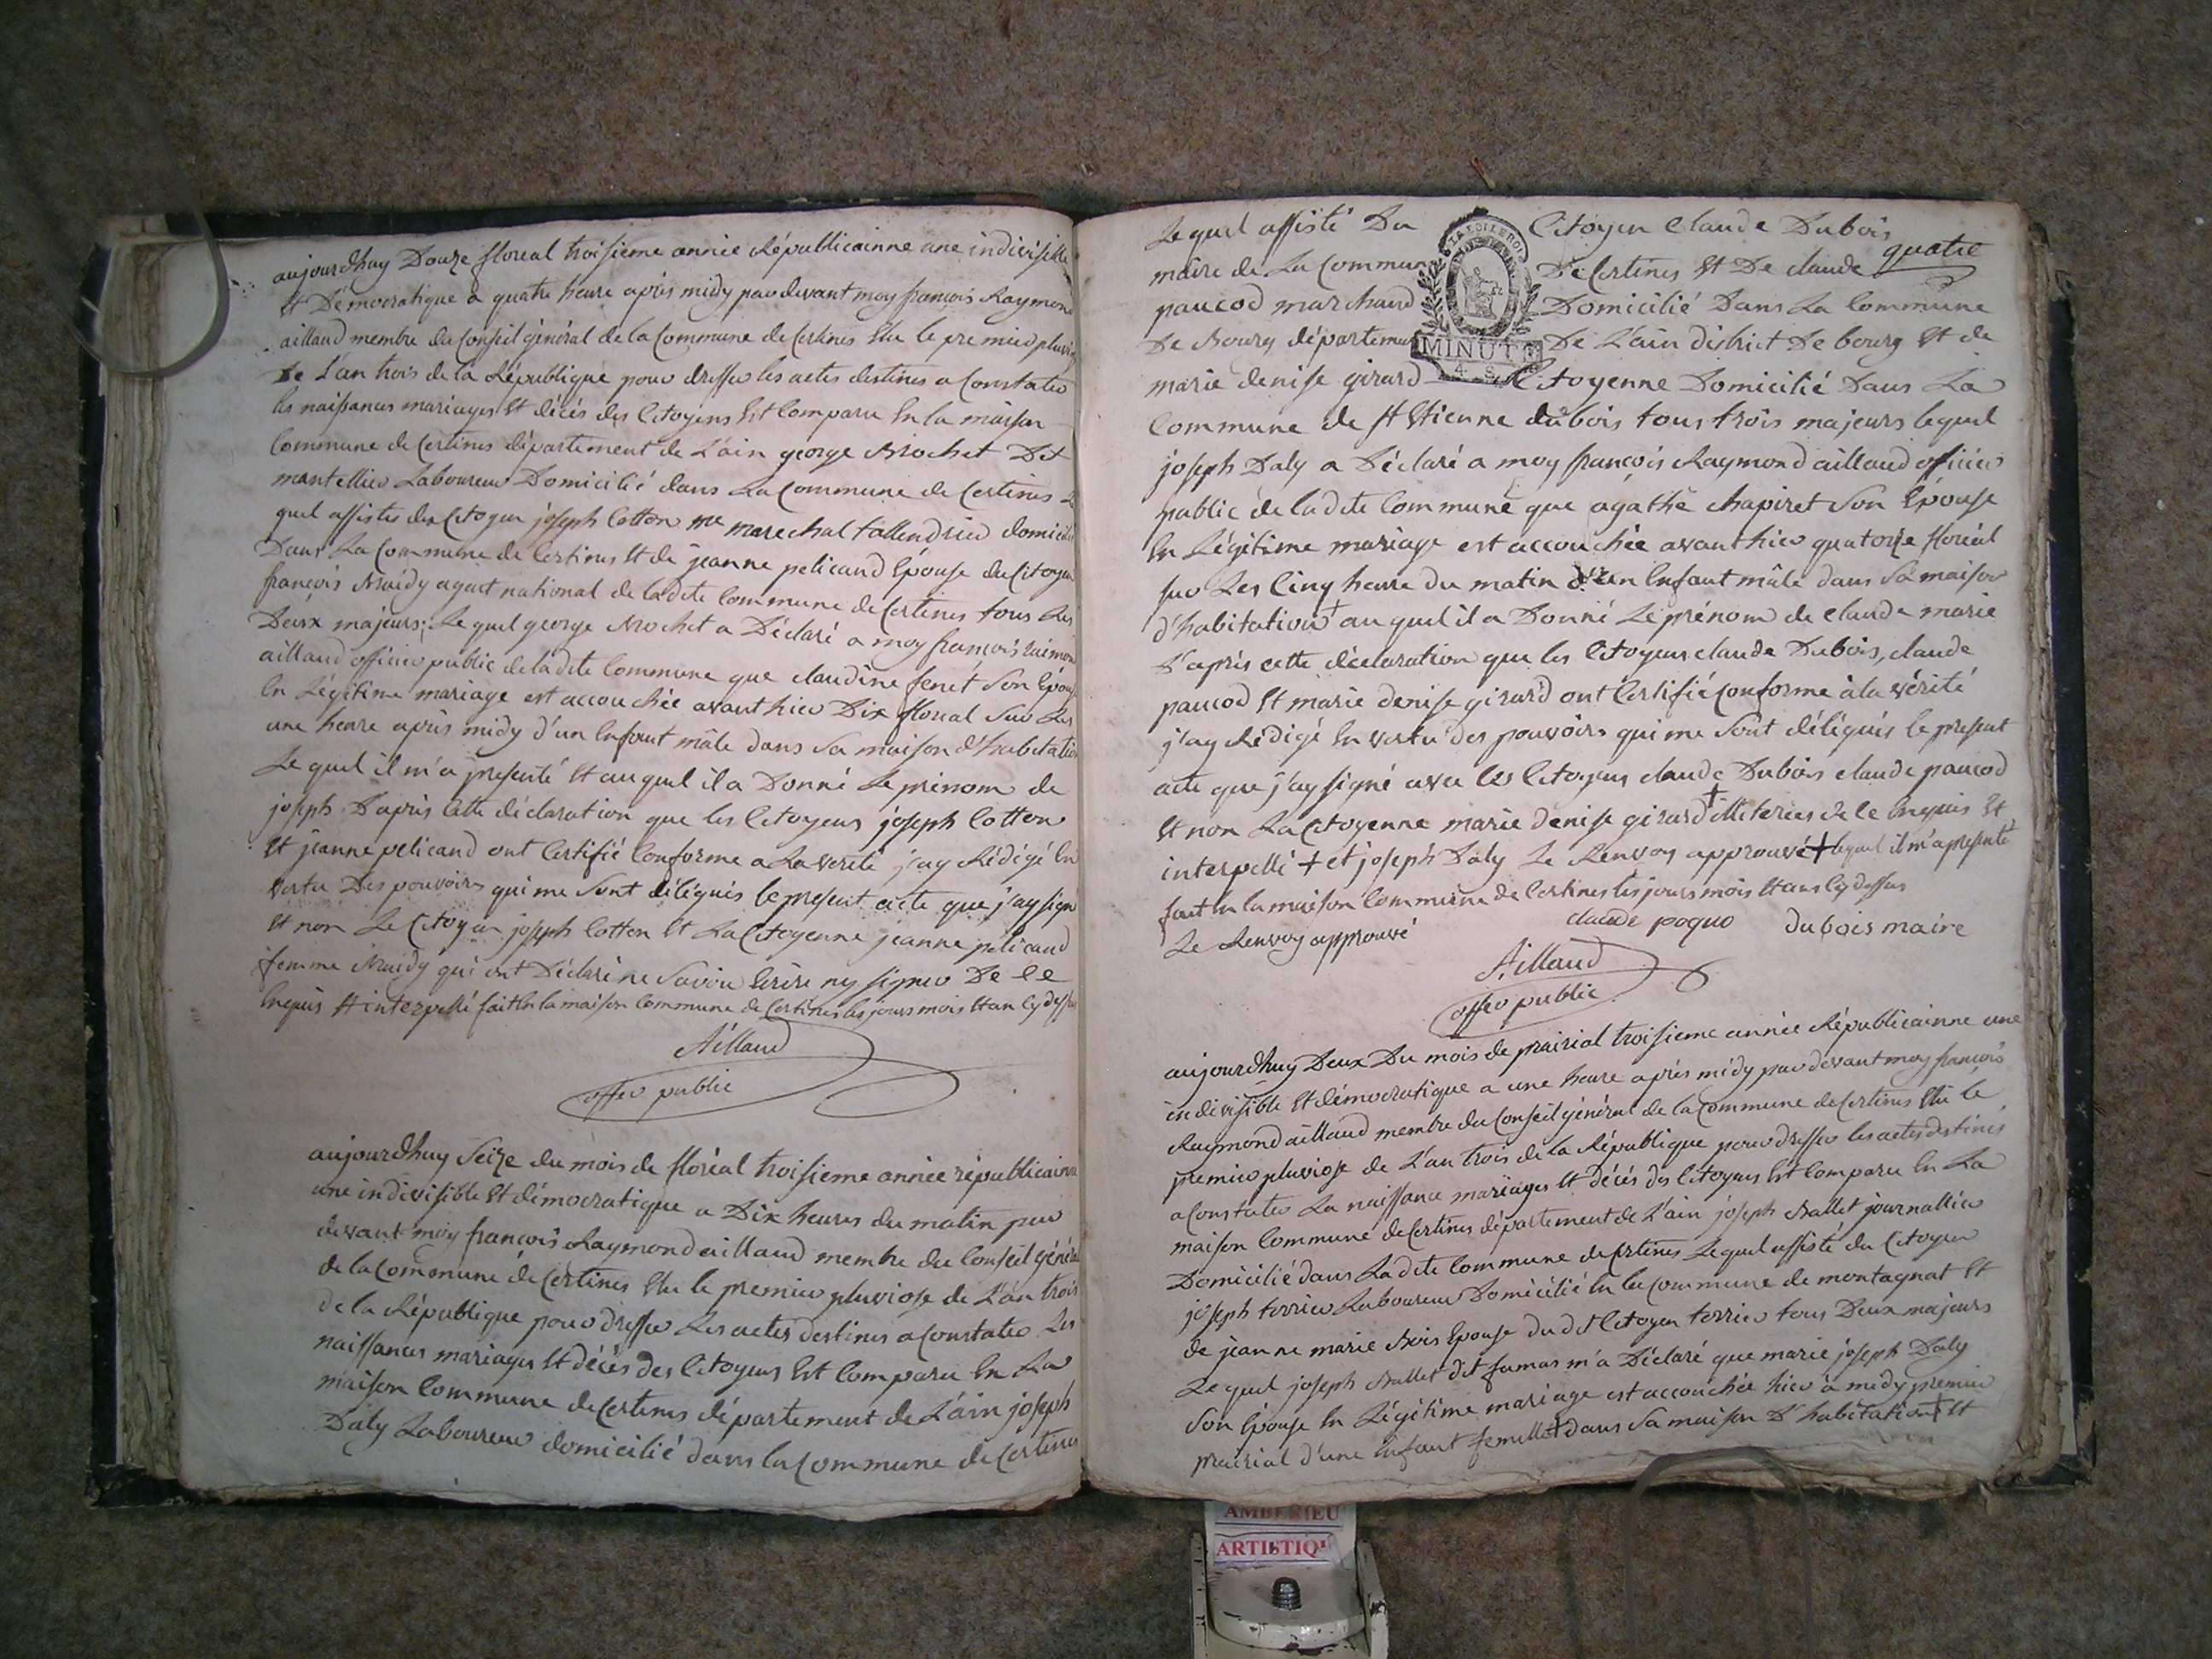 aujourdhuy Douze floreal troisieme année Républicainne une indivisible
et Démocratique à quatre heure après midy par devant moy françois Raymond
aillaud membre du Conseil général de la Commune de Certines élu le premier pluvi
De L'an trois de la République pour dresser les actes destinés a Constater
les naissances mariages et décés des Citoyens est Comparu En la maison
Commune de Certines département de L'ain george Brochet Dit
mantellier Laboureur Domicilié dans La Commune de Certines Le
quel assistés du Citoyen joseph Cotton me marechal tallendrier domicilié
Dans La Commune de Certines et de jeanne pelicand Epouse du Citoyen
françois Muidy agent national de ladite Commune de Certines tous Les
Deux majeurs; Le quel george Brochet a Déclaré a moy françois raimond
aillaud officier public de ladite Commune que claudine fenet Son Epouse
En Légitime mariage est accouchée avant hier Dix floreal Sur Les
une heure après midy d'un Enfant mâle dans Sa maison d'habitation
Le quel il m'a presenté et auquel il a Donné Le prénom de
joseph D'après Cette déclaration que les Citoyens joseph Cotton
et jeanne pelicand ont Certifié Conforme a La verité j'ay Rédigé En
vertu Des pouvoirs qui me Sont délégués le present acte que j'ay signé
et non Le Citoyen joseph Cotton et La Citoyenne jeanne pelicand
femme Muidy qui ont Déclaré ne Savoir Ecrire ny signer De Ce
Enquis et interpellé fait En la maison Commune de Certines les jours mois et an Cy dessus
Aillaud
offer public
aujourdhuy Seize du mois de floréal troisieme année républicainne
une indivisible et démocratique a Dix heures du matin par
devant moy françois Raymond aillaud membre du Conseil général
de la Commune de Certines élu le premier pluviose de L'an trois
de la République pour dresser Les actes destinés a Constater Les
naissances mariages et décés des Citoyens est Comparu En La
maison Commune de Certines département de L'ain joseph
Daly Laboureur domicilié dans la Commune de Certines
quatre
Le quel assisté Du Citoyen Claude Dubois
maire de La Commune De Certines et De claude
paucod marchand Domicilié Dans La Commune
De Bourg département De L'ain district De bourg et de
marie denise girard Citoyenne Domicilié Dans La
LA LOI LE ROI
MINUTE
4. S.
Commune de st Etienne dubois tous trois majeurs lequel
joseph Daly a Déclaré a moy françois Raymond aillaud officier
public de ladite Commune que agathe chapiret Son Epouse
En Légitime mariage est accouchée avant hier quatorze floréal
sur Les Cinq heure du matin d'un Enfant mâle dans Sa maison
d'habitation + au quel il a Donné Le prénom de claude marie
d'après cette déclaration que les Citoyens claude Dubois, claude
paucod et marie denise girard ont Certifié Conforme à la vérité
j'ay Rédigé En vertu des pouvoirs qui me Sont délégués le present
acte que j'ay signé avec les Citoyens claude Dubois claude paucod
et non La Citoyenne marie denise girard + de Ce Enquis et
interpellé + et joseph Daly Le Renvoy approuvé + lequel il m'a presenté
fait En la maison Commune de Certines les jours mois et ans Cy dessus
Le Renvoy approuvé
claude poquo
dubois maire
Aillaud
offer public
aujourdhuy Deux Du mois de prairial troisieme année Républicainne une
indivisible et démocratique a une heure après midy par devant moy françois
Raymond aillaud membre du Conseil général de la Commune de Certines élu le
premier pluviose de L'an trois de la République pour dresser les actes destinés
a Constater La naissance mariages et décés des Citoyens est Comparu En La
maison Commune de Certines département de L'ain joseph Ballet journallier
Domicilié dans Ladite Commune de Certines Lequel assisté du Citoyen
joseph terrier Laboureur Domicilié En la Commune de montagnat et
de jeanne marie Bois Epouse du dit Citoyen terrier tous Deux majeurs
Le quel joseph Ballet dit fumas m'a Déclaré que marie joseph Daly
Son Epouse En Légitime mariage est accouchée hier à midy premier
prairial d'une Enfant femelle + dans Sa maison D'habitation + et
AMBERIEU
ARTISTIQ